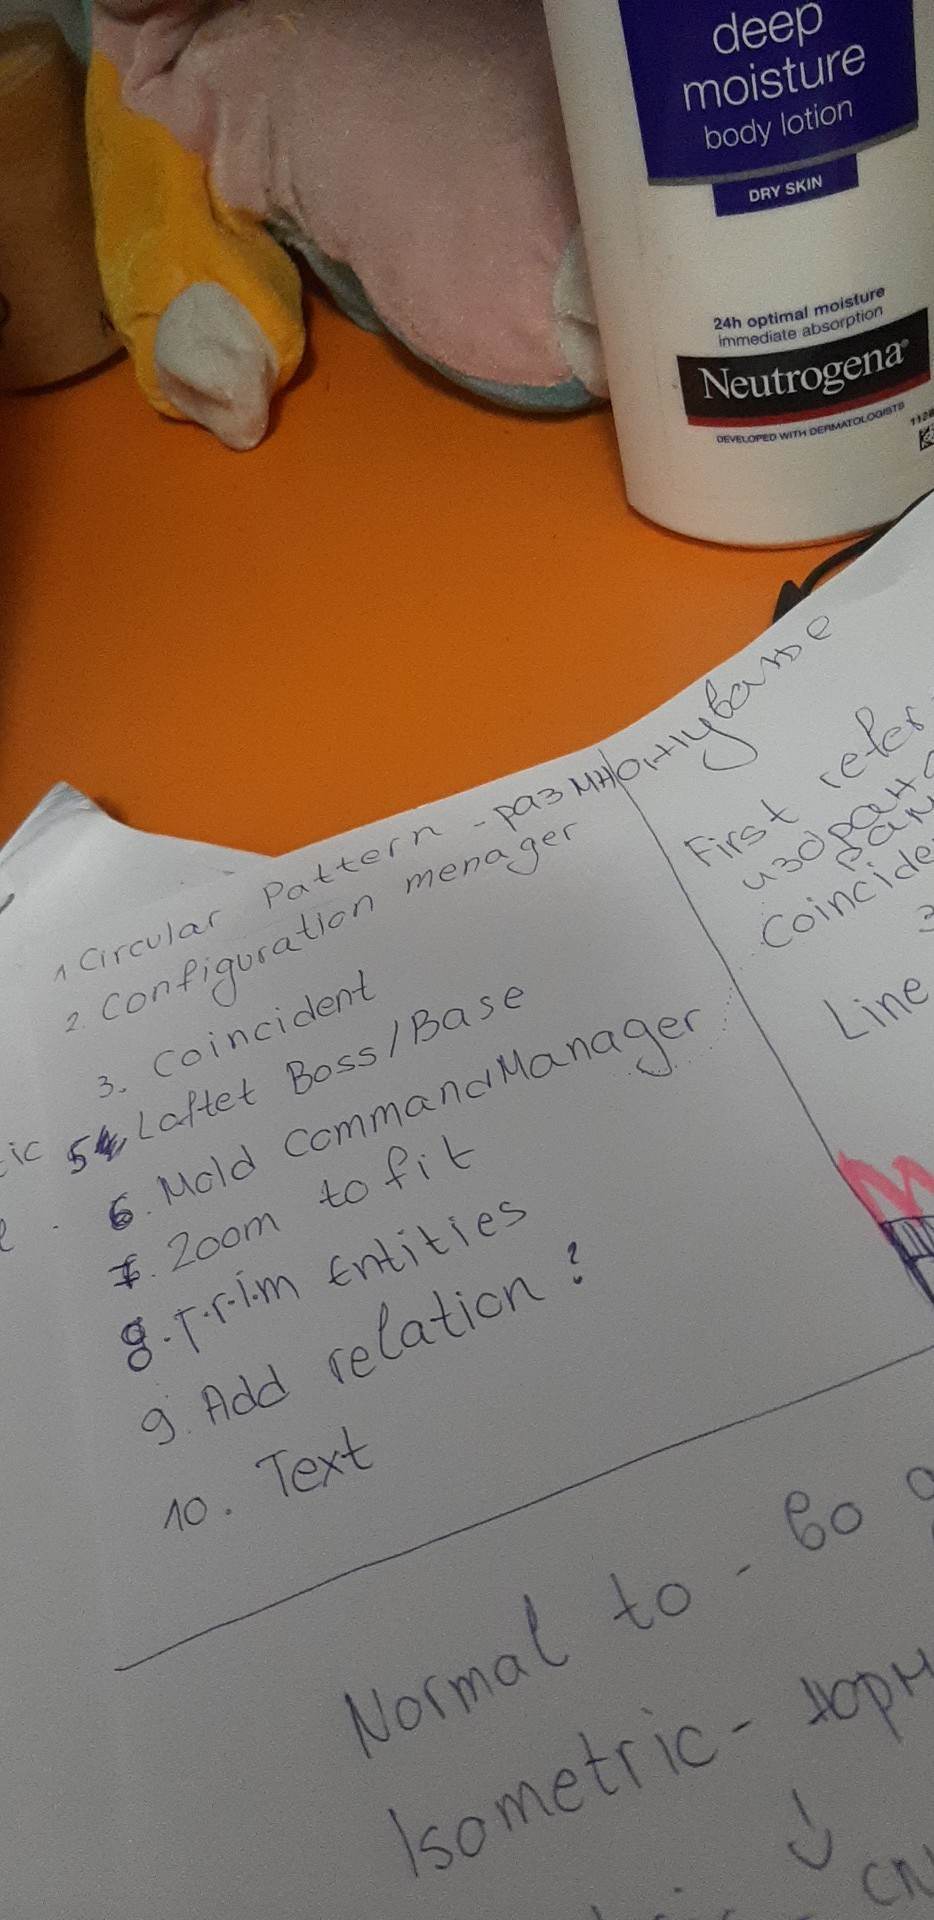 deep
moisture
body lotion
DRY SKIN
24h optimal moisture
immediate absorption
Neutrogena®
DEVELOPED WITH DERMATOLOGISTS
1 Circular Pattern - размножување
2. configuration menager
3. Coincident
5 Laftet Boss/Base
6. Mold CommandManager
7. Zoom to fit
8. T.r.i.m Entities
9. Add relation?
10. Text
First refer
Coincide
Line
Normal to - во
Isometric -